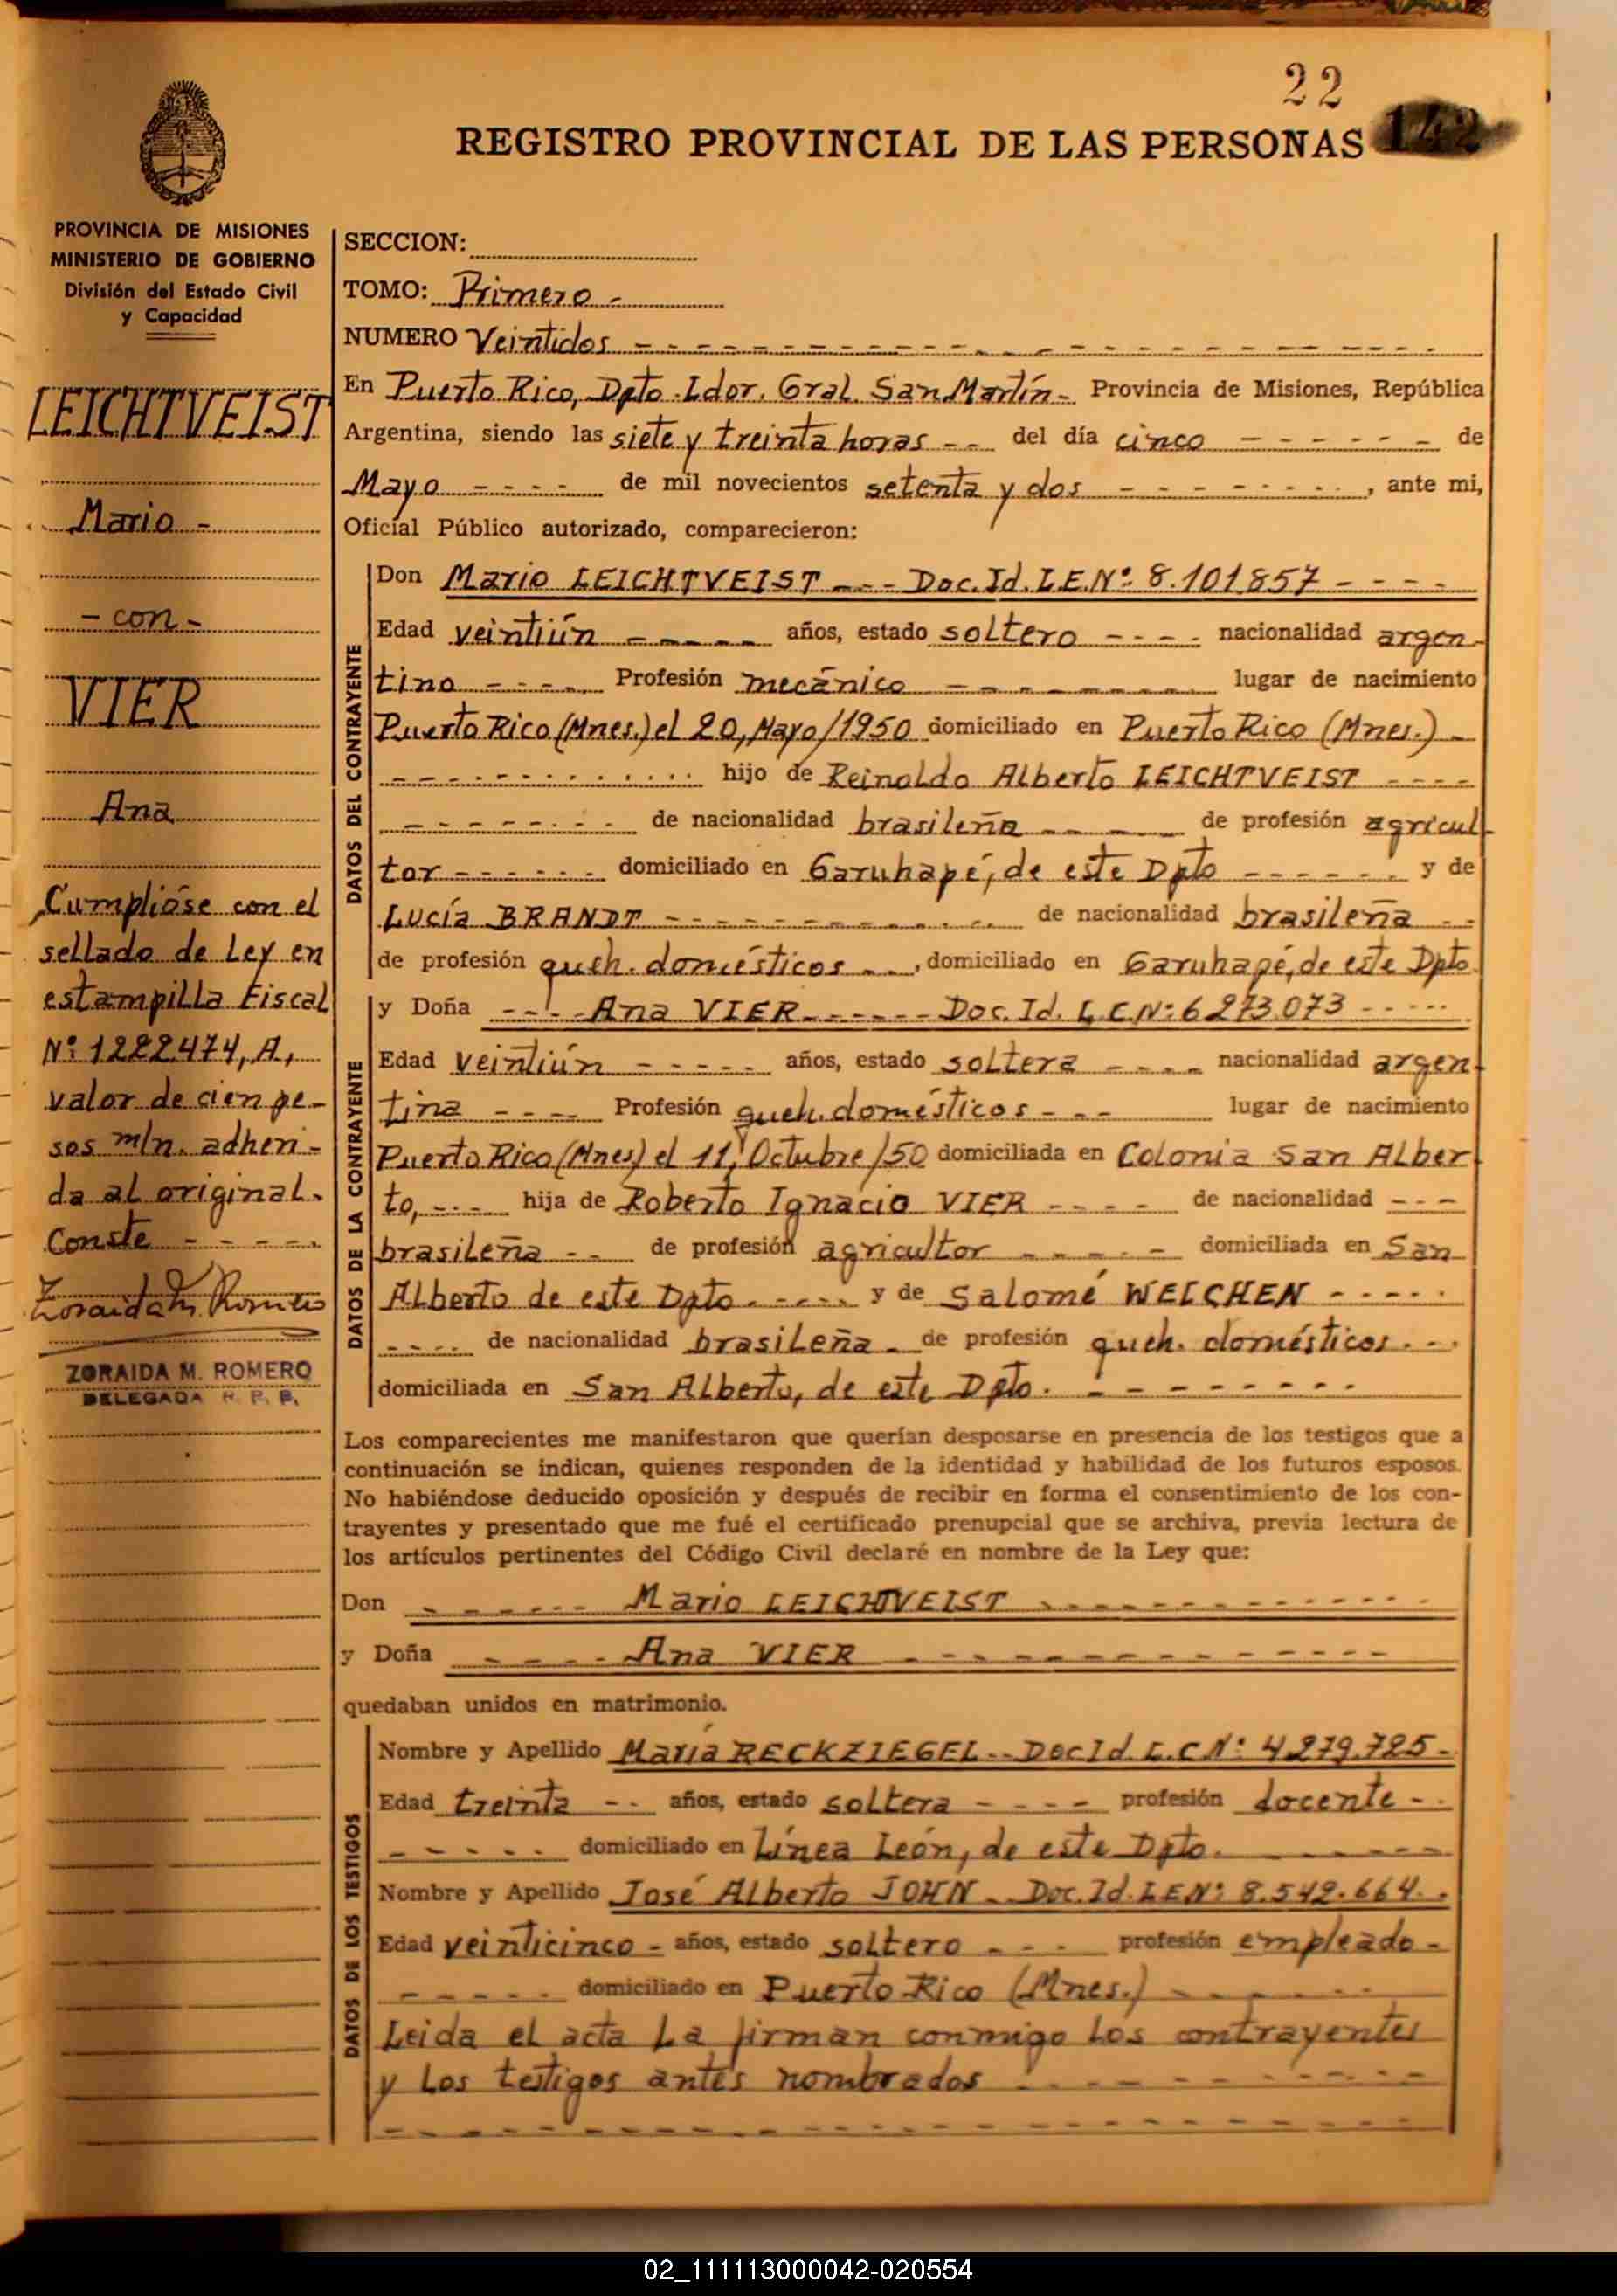 22
REGISTRO PROVINCIAL DE LAS PERSONAS 142
PROVINCIA DE MISIONES
MINISTERIO DE GOBIERNO
División del Estado Civil
y Capacidad
LEICHTVEIST
Mario -
- con -
VIER
Ana
Cumplióse con el
sellado de Ley en
estampilla Fiscal
Nº 1222474, A,
valor de cien pe-
sos m/n. adheri-
da al original.
Conste - - - - -
Zoraida M. Romero
ZORAIDA M. ROMERO
DELEGADA R. P. P.
SECCION:
TOMO: Primero -
NUMERO Veintidos - - - - - - - - - -
En Puerto Rico, Dpto. Ldor. Gral. San Martín - Provincia de Misiones, República
Argentina, siendo las siete y treinta horas - - del día cinco - - - - - - de
Mayo - - - - de mil novecientos setenta y dos - - - - - - - -, ante mi,
Oficial Público autorizado, comparecieron:
DATOS DEL CONTRAYENTE
Don Mario LEICHTVEIST - - - Doc. Id. L.E. Nº 8.101.857 - - - -
Edad veintiún - - - - - años, estado soltero - - - - nacionalidad argen-
tino - - - - - Profesión mecánico - - - - - - - - lugar de nacimiento
Puerto Rico (Mnes.) el 20, Mayo/1950 domiciliado en Puerto Rico (Mnes.) -
- - - - - - - - - - hijo de Reinaldo Alberto LEICHTVEIST - - - -
- - - - - - - - de nacionalidad brasileña - - - - de profesión agricul-
tor - - - - - - domiciliado en Garuhapé, de este Dpto - - - - - - y de
Lucía BRANDT - - - - - - - - - - de nacionalidad brasileña - -
de profesión queh. domésticos - -, domiciliado en Garuhapé, de este Dpto.
DATOS DE LA CONTRAYENTE
y Doña - - - - Ana VIER - - - - - - Doc. Id. L.C. Nº 6.273.073 - - - -
Edad veintiún - - - - - años, estado soltera - - - - nacionalidad argen-
tina - - - - Profesión queh. domésticos - - - lugar de nacimiento
Puerto Rico (Mnes) el 11, Octubre/50 domiciliada en Colonia San Alber
to, - - - hija de Roberto Ignacio VIER - - - - de nacionalidad - - -
brasileña - - de profesión agricultor - - - - - domiciliada en San
Alberto de este Dpto. - - - - y de Salomé WELCHEN - - - - -
- - - - de nacionalidad brasileña - de profesión queh. domésticos - - -
domiciliada en San Alberto, de este Dpto. - - - - - - - -
Los comparecientes me manifestaron que querían desposarse en presencia de los testigos que a
continuación se indican, quienes responden de la identidad y habilidad de los futuros esposos.
No habiéndose deducido oposición y después de recibir en forma el consentimiento de los con-
trayentes y presentado que me fué el certificado prenupcial que se archiva, previa lectura de
los artículos pertinentes del Código Civil declaré en nombre de la Ley que:
Don - - - - - - Mario LEICHTVEIST - - - - - - - - - -
y Doña - - - - - Ana VIER - - - - - - - - - -
quedaban unidos en matrimonio.
DATOS DE LOS TESTIGOS
Nombre y Apellido María RECKZIEGEL - - Doc Id. L.C Nº 4.279.725 -
Edad treinta - - años, estado soltera - - - - profesión docente - -
- - - - - domiciliado en Línea León, de este Dpto. - - - -
Nombre y Apellido José Alberto JOHN - Doc. Id. L.E Nº 8.542.664 - -
Edad veinticinco - años, estado soltero - - - profesión empleado -
- - - - - domiciliado en Puerto Rico (Mnes.) - - - - -
Leida el acta la firman conmigo los contrayentes
y los testigos antes nombrados - - - - - - - -
02_111113000042-020554